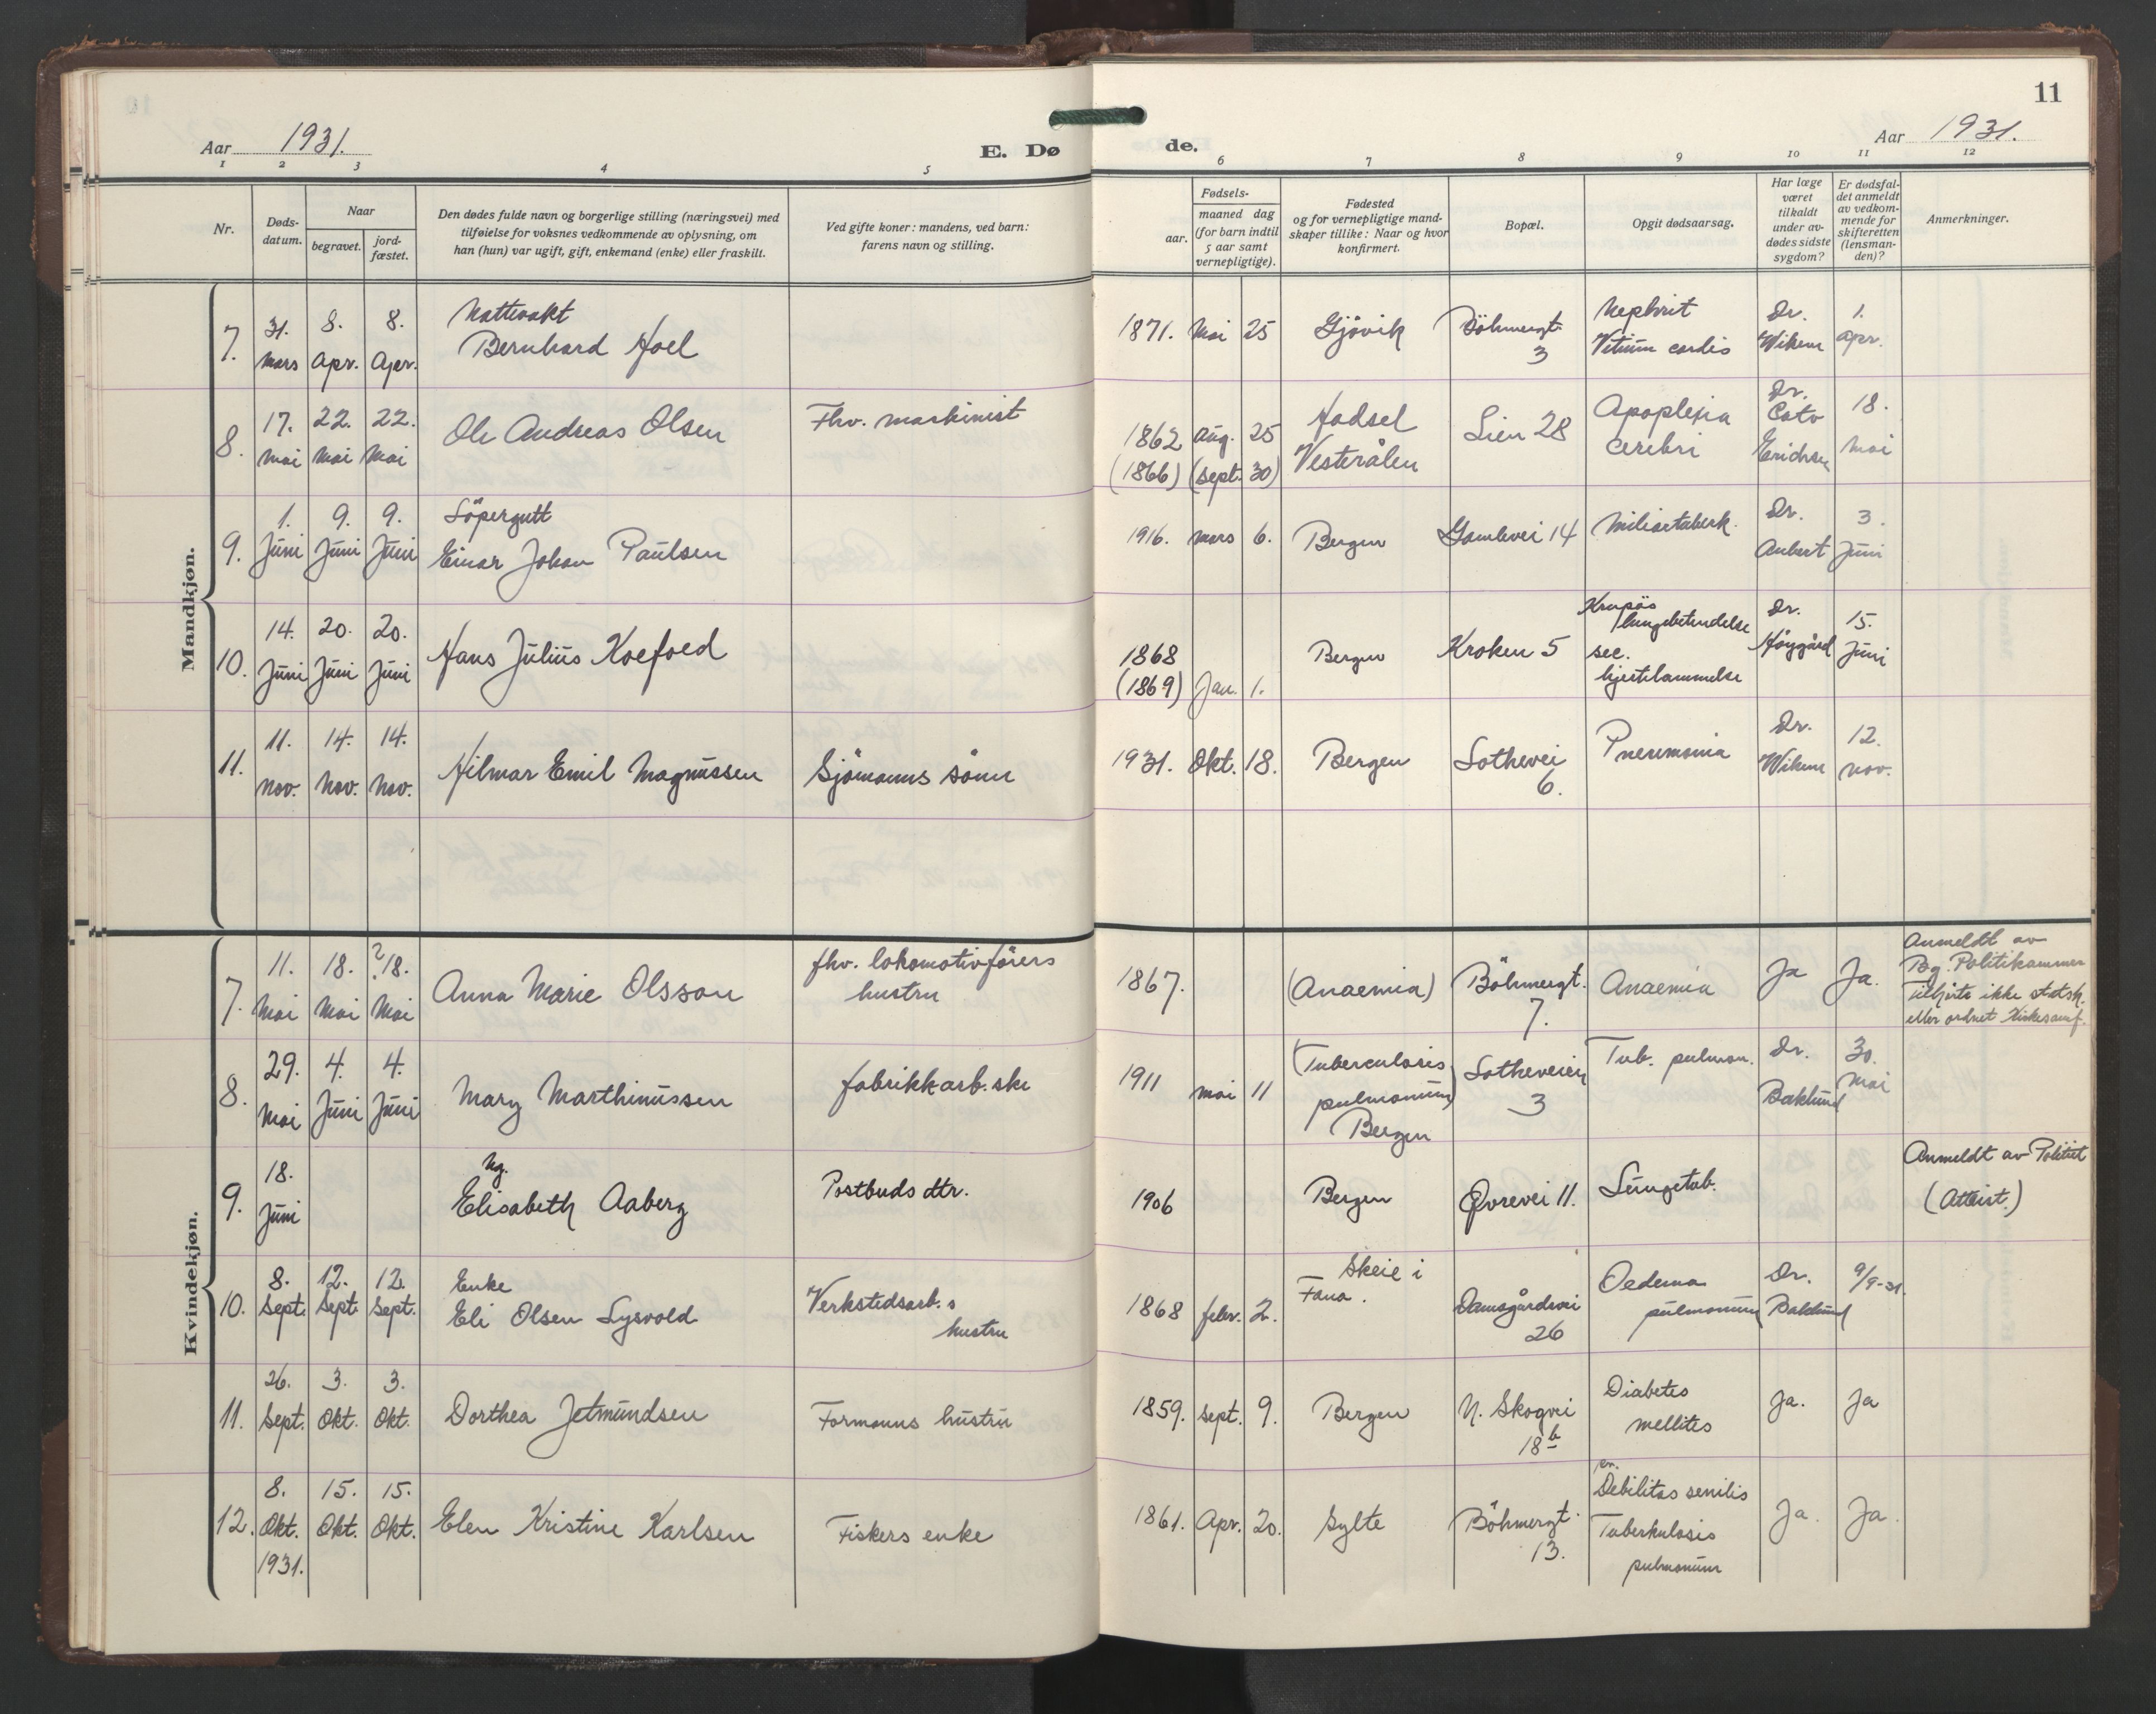 11
Aar 1931.
E. Dø
de.
Aar 1931.
1 2 3 4 5 6 7 8 9 10 11 12
Nr.
Døds-
datum.
Naar
begravet.
jord-
fæstet.
Den dødes fulde navn og borgerlige stilling (næringsvei) med
tilføielse for voksnes vedkommende av oplysning, om
han (hun) var ugift, gift, enkemand (enke) eller fraskilt.
Ved gifte koner: mandens, ved barn:
farens navn og stilling.
aar.
Fødsels-
maaned dag
(for barn indtil
5 aar samt
vernepligtige).
Fødested
og for vernepligtige mand-
skaper tillike: Naar og hvor
konfirmert.
Bopæl.
Opgit dødsaarsag.
Har læge
været
tilkaldt
under av-
dødes sidste
sygdom?
Er dødsfal-
det anmeldt
av vedkom-
mende for
skifteretten
(lensman-
den)?
Anmerkninger.
Mandkjøn.
7.
31.
mars
8.
Apr.
8.
Apr.
Nattevakt
Bernhard Hoel
1871. Mai 25
Gjøvik
Böhmergt.
3
Nephrit
Vitium cordis
Dr.
Wiken
1.
Apr.
8.
17.
mai
22.
Mai
22.
Mai
Ole Andreas Olsen
Fhv. maskinist
1862 Aug. 25
(1866) (Sept. 30)
Hadsel
Vesterålen
Lien 28
Apoplexia
cerebri
Dr.
Cato
Erichsen
18.
mai
9.
1.
Juni
9.
Juni
9.
Juni
Söpergutt
Einar Johan Paulsen
1916. mars 6.
Bergen
Gamlevei 14
Miliartuberk.
Dr.
Aubert
3.
Juni
10.
14.
Juni
20.
Juni
20.
Juni
Hans Julius Koefoed
1868
(1869) Jan. 1.
Bergen
Kroken 5
Krupös
lungebetendelse
sec.
hjertelammelse
Dr.
Höygård
15.
Juni
11.
11.
nov.
14.
Nov.
14.
Nov.
Hilmar Emil Magnussen
Sjömanns sönn
1931. Okt. 18.
Bergen
Lothevei
6.
Pneumonia
Dr.
Wiken
12.
nov.
Kvindekjøn.
7.
11.
Mai
18.
Mai
? 18.
Mai
Anna Marie Olsson
fhv. lokomotivförers
hustru
1867.
(Anaemia)
Böhmergt.
7.
Anaemia
Ja
Ja.
Anmeldt av
Bg. Politikammer
Tilhörte ikke statsk.
eller ordnet Kirkesamf.
8.
29.
Mai
4.
Juni
4.
Juni
Mary Marthinussen
fabrikkarb.ske
1911 mai 11
(Tuberculosis
pulmonum)
Bergen
Lotheveien
3
Tub. pulmon.
Dr.
Baklund
30.
mai
9.
18.
Juni
Ug.
Elisabeth Aaberg
Postbuds dtr.
1906
Bergen
Øvrevei 11.
Lungetub.
Anmeldt av Politiet
(Atteist.)
10.
8.
Sept.
12.
Sept.
12.
Sept.
Enke
Eli Olsen Lysvold
Verkstedsarb.s
hustru
1868 febr. 2.
Skeie i
Fana.
Damsgårdsvei
26
Oedema
pulmonum
Dr.
Baklund
9/9-31.
11.
26.
Sept.
3.
Okt.
3.
Okt.
Dorthea Jetmundsen
Formanns hustru
1859. Sept. 9.
Bergen
N. Skogvei
18 b
Diabetes
mellites
Ja.
Ja
12.
8.
Okt.
1931.
15.
Okt.
15.
Okt.
Elen Kristine Karlsen
Fiskers enke
1861. Apr. 20.
Sylte
Böhmergt.
13.
Debilitas senilis
Tuberkulosis
pulmonum
Ja.
Ja.